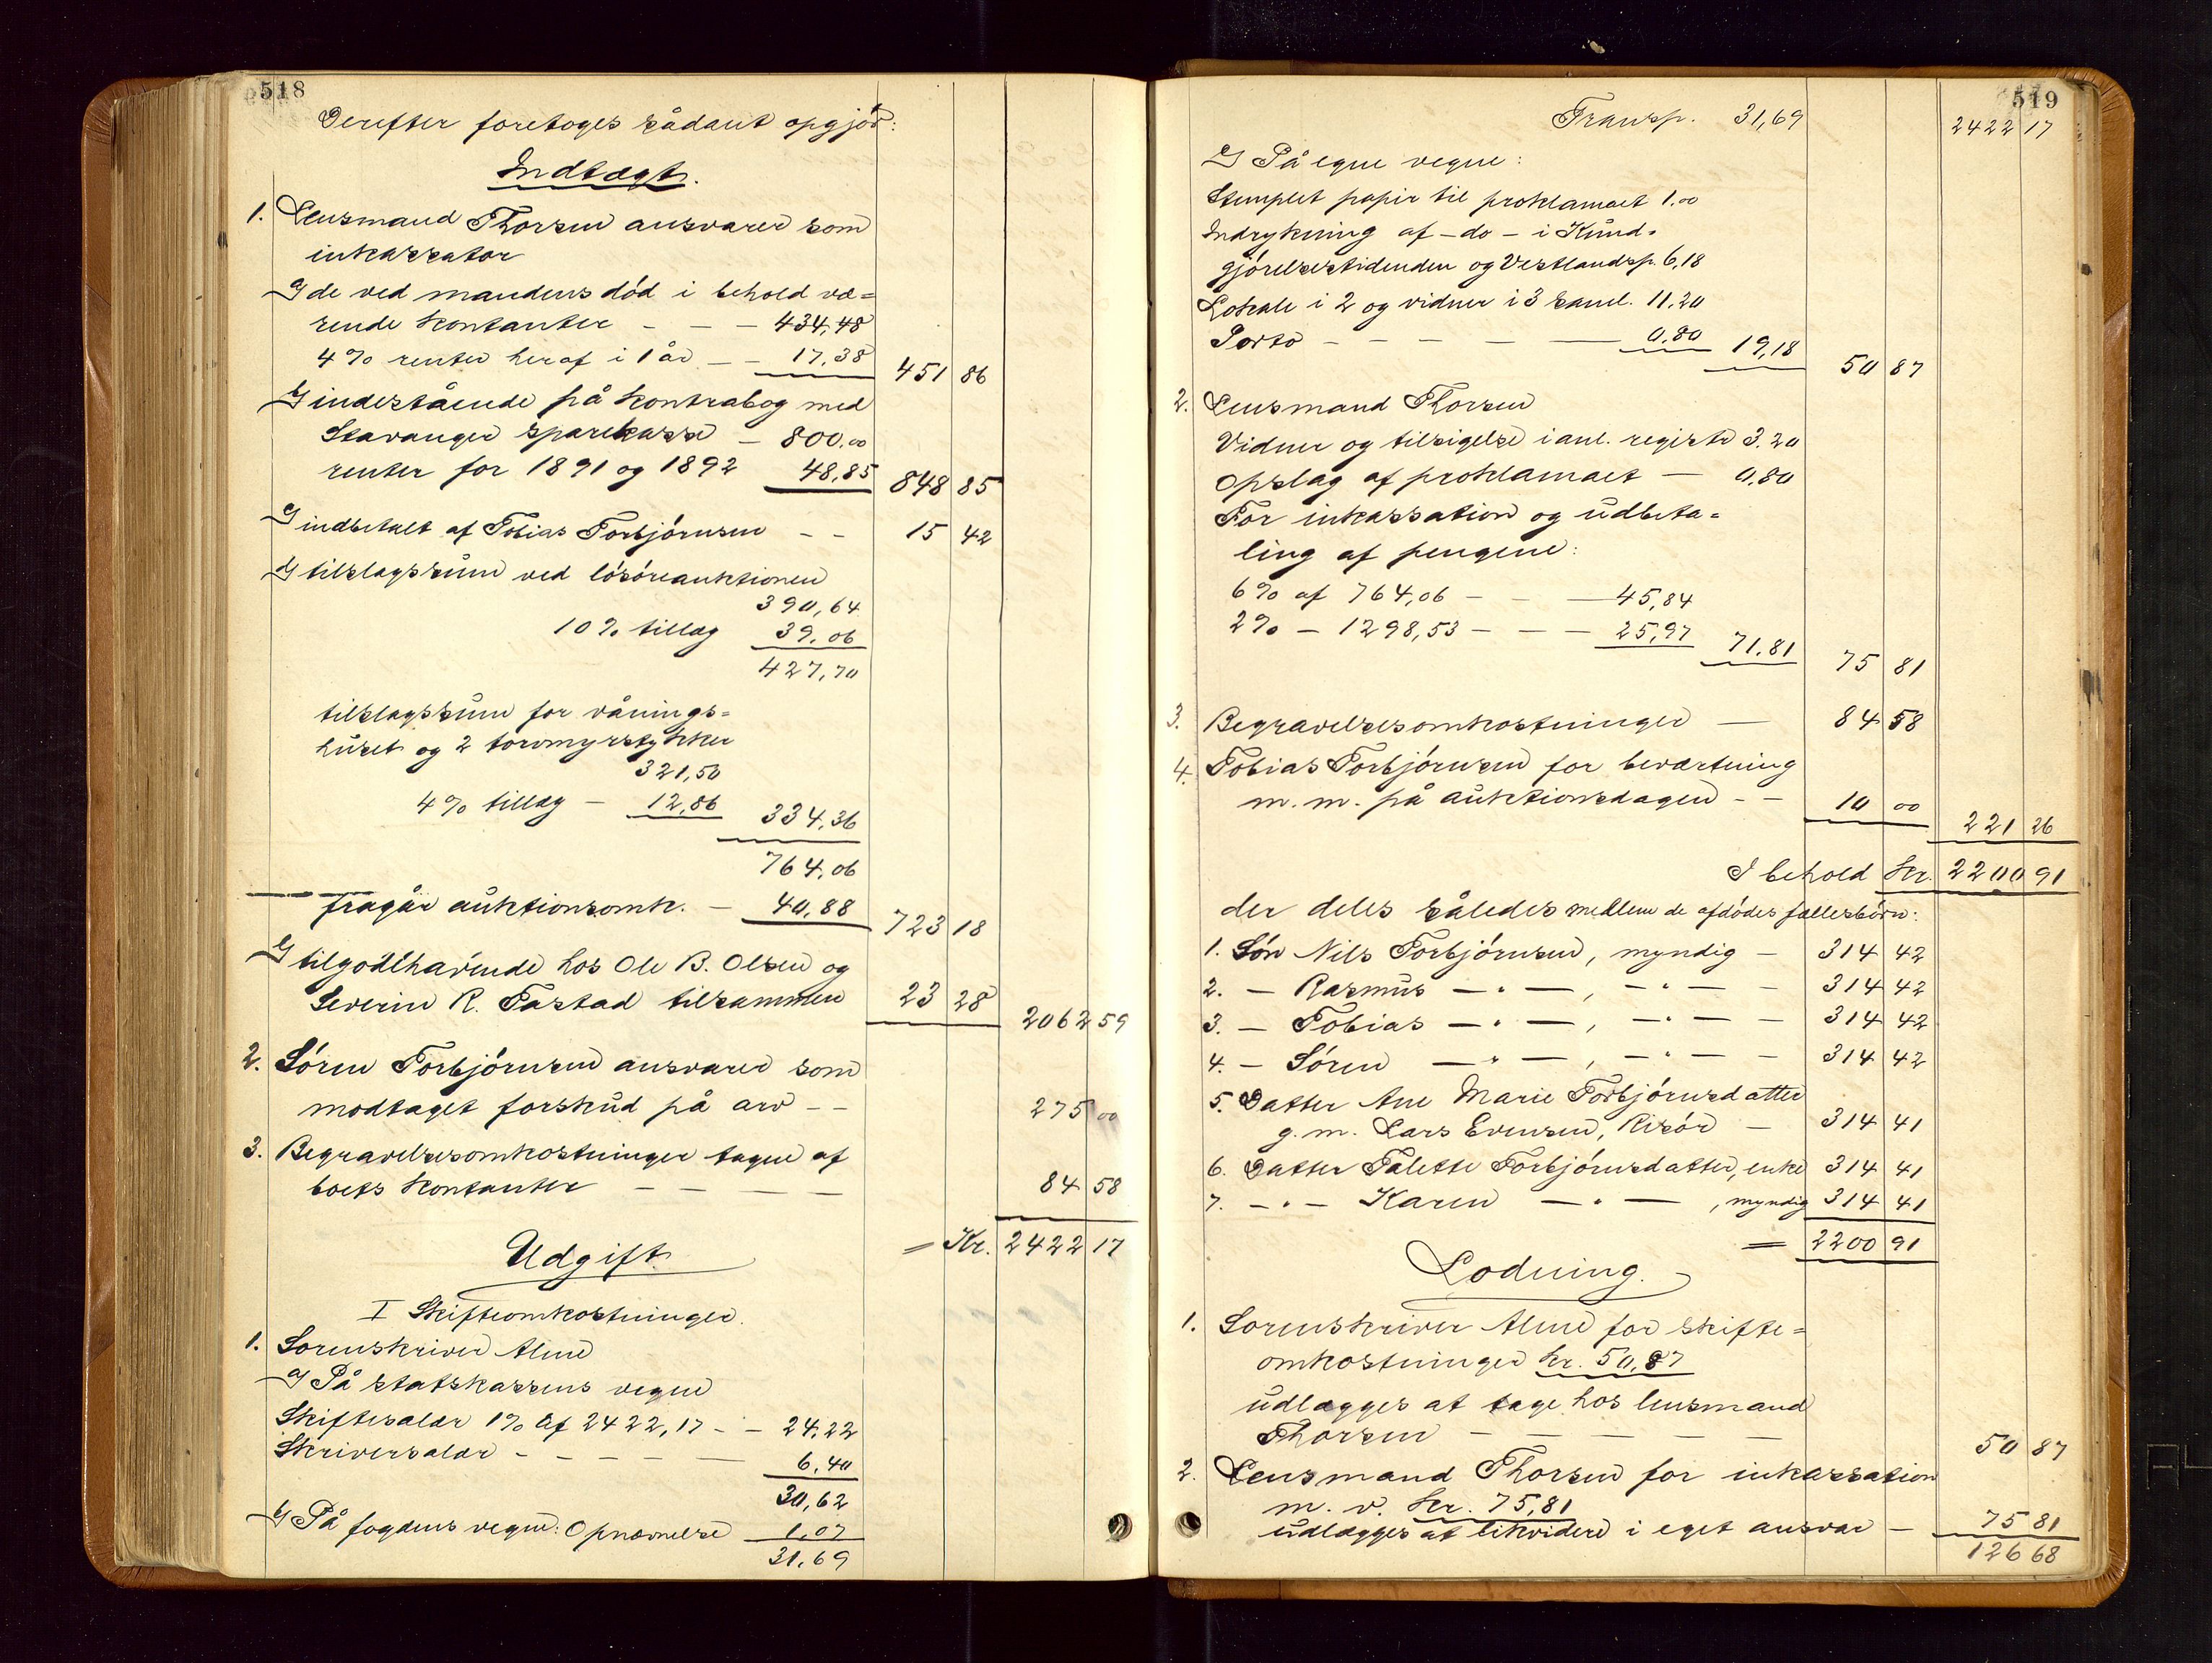 518
Derefter foretoges sådant opgjør:
Indtægt.
1. Lensmand Thorsen ansvarer som
inkassator
a) de ved mandens død i behold væ=
rende kontanter - - - 434,48
4% renter heraf i 1 år - - 17,38 451 86
b) indestående på kontrabog med
Stavanger sparekasse - 800,00
renter for 1891 og 1892 48,85 848 85
c) indbetalt af Tobias Torbjørnsen - - 15 42
d) tilslagssum ved løsøreauktionen
390,64
10% tillæg 39,06
427,70
tilslagssum for vånings=
huset og 2 torvmyrstykker
321,50
4% tillæg - 12,86 334,36
764,06
fragår auktionsomk. - 40,88 723 18
e) tilgodehavende hos Ole B. Olsen og
Severin R. Tastad tilsammen 23 28 2062 59
2. Søren Torbjørnsen ansvarer som
modtaget forskud på arv - - 275 00
3. Begravelsesomkostninger tagne af
boets kontanter - - - - 84 58
= Kr. 2422 17
Udgift
I Skifteomkostninger.
1. Sorenskriver Alme
a) På statskassens vegne
Skiftesalær 1% af 2422,17 - - 24,22
Skriversalær - - - - - 6,40
30,62
b) På fogdens vegne: Opnævnelse 1,07
31,69
519
Transp. 31,69 2422 17
c) På egne vegne:
Stemplet papir til proklamaet 1.00
Indrykning af - do - i Kund=
gjørelsestidenden og Vestlandsp. 6,18
Lokale i 2 og vidner i 3 saml. 11.20
Porto - - - - - 0,80 19,18 50 87
2. Lensmand Thorsen
Vidner og tilsigelse i anl. registr 3.20
Opslag af proklamaet - 0,80
For inkassation og udbeta=
ling af pengene:
6% af 764,06 - - - 45,84
2% - 1298,53 - - - 25,97 71.81 75 81
3. Begravelsesomkostninger - 84 58
4. Tobias Torbjørnsen for beværtning
m. m. på auktionsdagen - - 10 00 221 26
I behold Kr. 2200 91
der deles således mellem de afdødes fællesbørn:
1. Søn Nils Torbjørnsen, myndig - 314 42
2. - Rasmus - " - , - " - - 314 42
3. - Tobias - " - , - " - - 314 42
4. - Søren - " - , - " - - 314 42
5. Datter Ane Marie Torbjørnsdatter
g. m. Lars Evensen, Risør - 314 41
6. Datter Talette Torbjørnsdatter, enke 314 41
7. - " - Karen - " - , myndig 314 41
= 2200 91
Lodning.
1. Sorenskriver Alme for skifte=
omkostninger kr. 50,87
udlægges at tage hos lensmand
Thorsen - - - - - 50 87
2. Lensmand Thorsen for inkassation
m. v. kr. 75,81
udlægges at likvidere i eget ansvar - 75 81
126 68